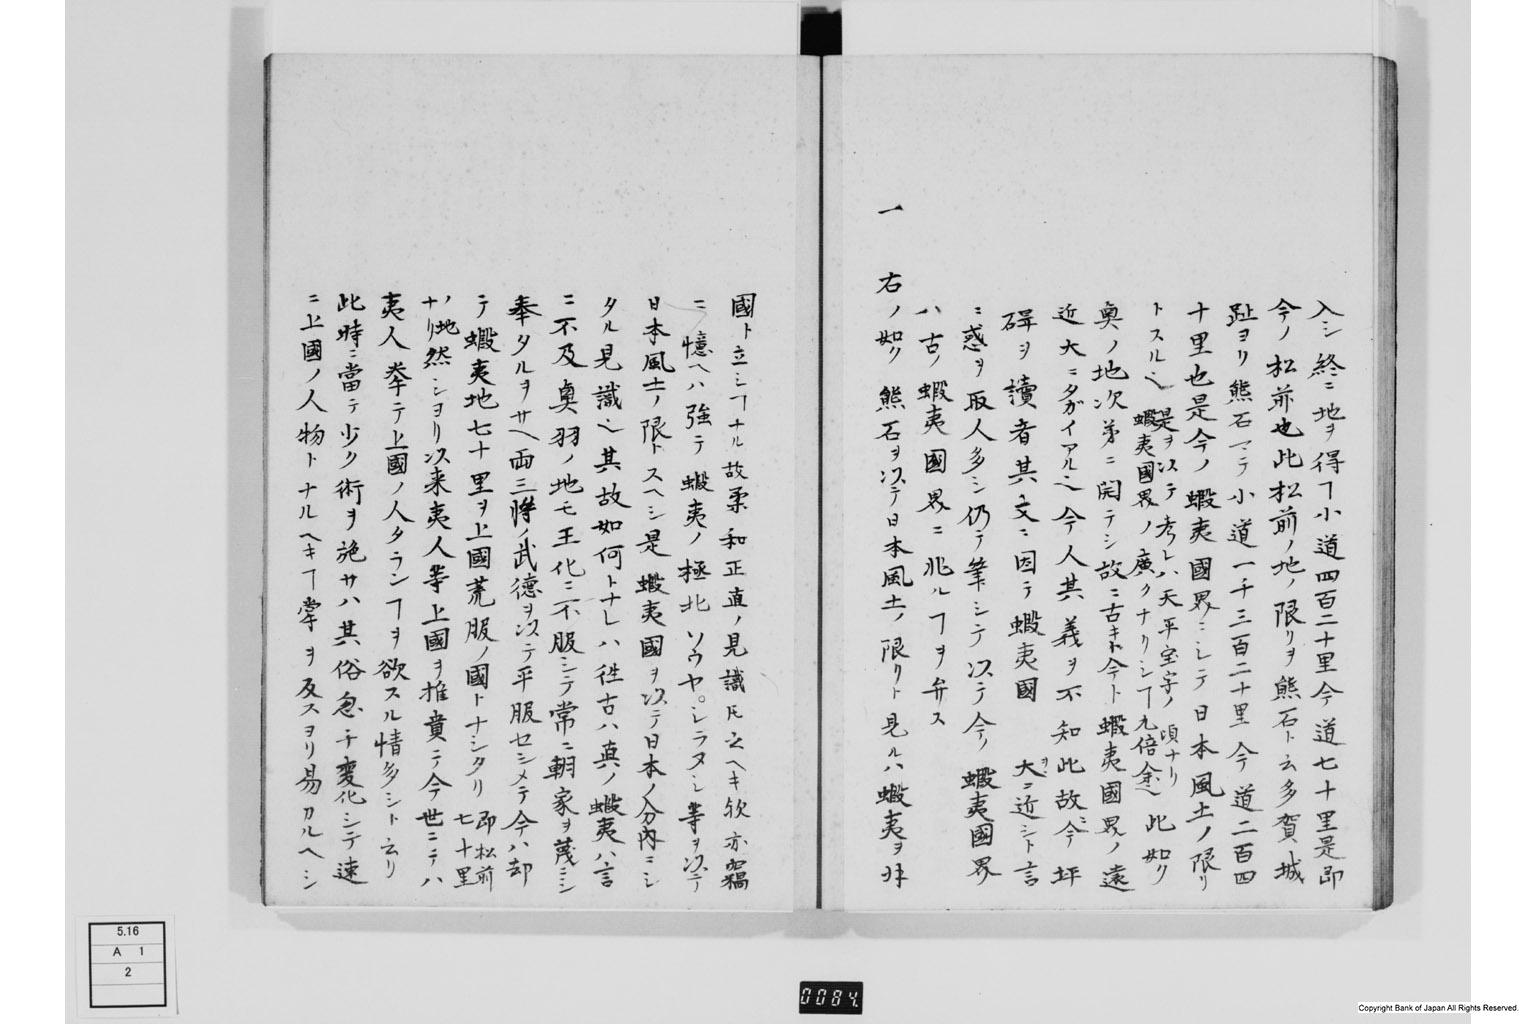 入シ終ニ地ヲ得ヿ小道四百二十里今道七十里是即
今ノ松前也此松前ノ地ノ限リヲ熊石ト云多賀城
趾ヨリ熊石マテ小道一千三百二十里今道二百四
十里也是今ノ蝦夷國界ニシテ日本風土ノ限リ
トスル也是ヲ以テ考レハ天平宝字ノ頃ナリ
蝦夷國界ノ廣クナリシヿ九倍余也此如ク
奥ノ地次第ニ開テシ故ニ古ト今ト蝦夷國界ノ遠
近大ニタガイアル也今人其義ヲ不知此故ニ今坪
碍ヲ讀者其文ニ因テ蝦夷國ヲ大ニ近シト言
ニ惑ヲ取人多シ仍テ筆シテ以テ今ノ蝦夷國界
ハ古ノ蝦夷國界ニ非ルヿヲ弁ス
一 右ノ如ク熊石ヲ以テ日本風土ノ限リト見ルハ蝦夷ヲ
國ト立シヿナル故柔和正直ノ見識ト云ヘキ歟亦窩
ニ憶ヘハ強テ蝦夷ノ極北ソウヤ。シラヌシ等ヲ以テ
日本風土ノ限トスヘシ是蝦夷國ヲ以テ日本ノ分內ニシ
タル見識也其故如何トナレハ徃古ハ真ノ蝦夷ハ言
ニ不及奥羽ノ地モ王化ニ不服シテ常ニ朝家ヲ蔑ニシ
奉タルヲサヘ両三將ノ武德ヲ以テ平服セシメテ今ハ却
テ蝦夷地七十里ヲ上國荒服ノ國トナシタリ即松前七十里
ノ地ナリ然シヨリ以来夷人等上國ヲ推賁テ今世ニテハ
夷人挙テ上國ノ人タランヿヲ欲スル情多シト云リ
此時ニ當テ少ク術ヲ施サハ其俗忽チ変化シテ速
ニ上國ノ人物トナルヘキヿ掌ヲ反スヨリ易カルヘシ
5.16
A 1
2
0084.
Copyright Bank of Japan All Rights Reserved.